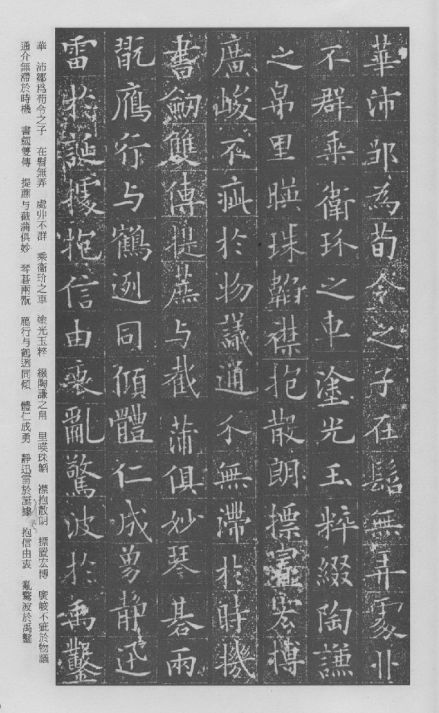 華沛邹為荀令之子在髫無弄處丱
不群乗衛玠之車塗光玉粹綴陶謙
之帛里暎珠韜襟抱散朗摽置宏博
廣峻不疵於物議通介無滯於時機
書劒雙傳提蕉与截蒲俱妙琴碁兩
翫鴈行与鶴迾同傾體仁成勇静迅
雷於誕據抱信由衷亂驚波於禹鑿
華沛鄒為荀令之子 在髫無弄 處丱不群 乘衛玠之車 塗光玉粹 綴陶謙之帛 里暎珠韜 襟抱散朗 摽置宏博 廣峻不疵於物議
通介無滯於時機 書劒雙傳 提蕉与截蒲俱妙 琴碁兩翫 鴈行与鶴迾同傾 體仁成勇 靜迅雷於誕據 抱信由衷 亂驚波於禹鑿